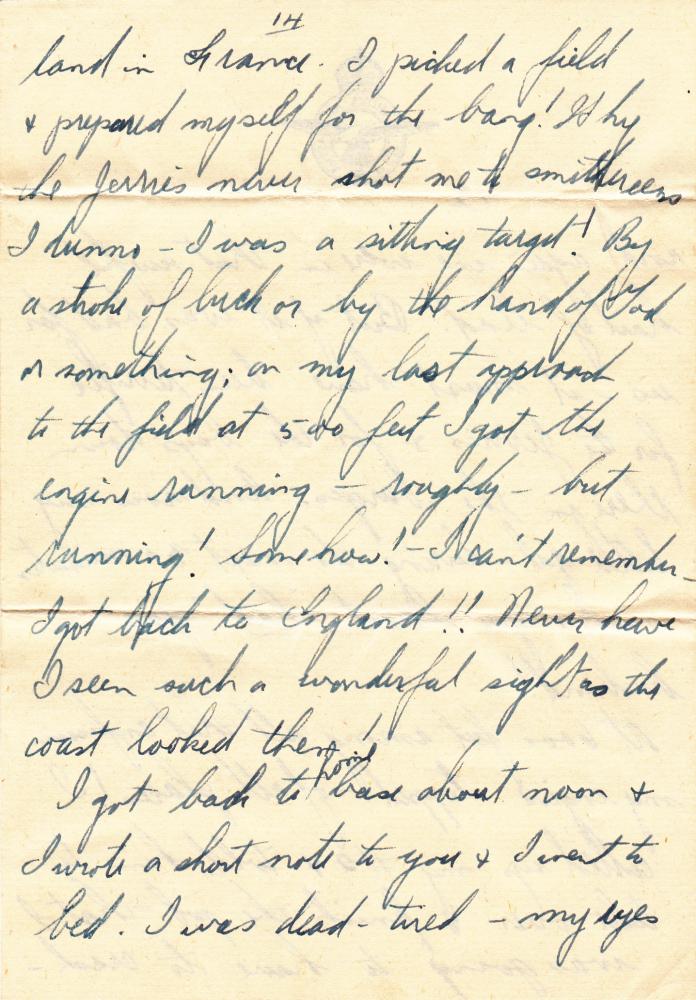 14
land in France. I picked a field
& prepared myself for the bang! Why
the Jerries never shot me to smithereens
I dunno – I was a sitting target! By
a stroke of luck or by the hand of God
or something; on my last approach
to the field at 500 feet I got the
engine running – roughly – but
running! Somehow! – I can't remember –
I got back to England!! Never have
I seen such a wonderful sight as the
coast looked then!
home
I got back to base about noon &
I wrote a short note to you & I went to
bed. I was dead-tired – my eyes